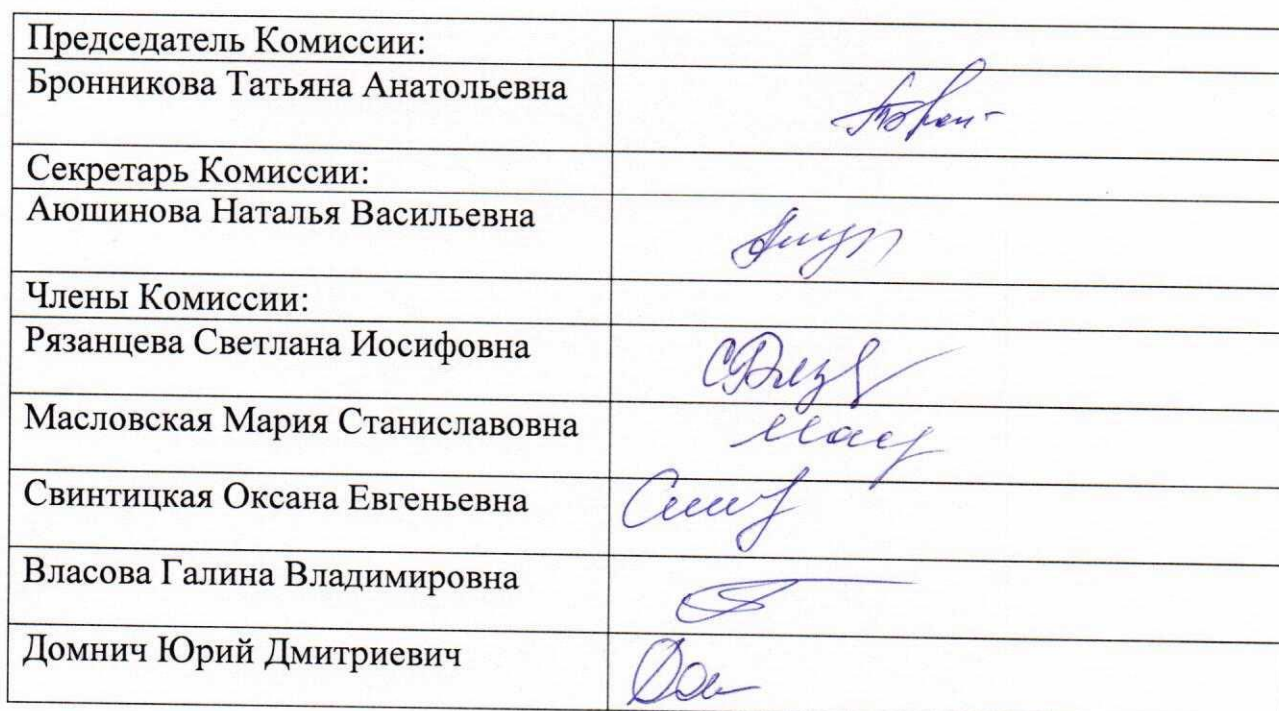 Председатель Комиссии:
Бронникова Татьяна Анатольевна
Секретарь Комиссии:
Аюшинова Наталья Васильевна
Члены Комиссии:
Рязанцева Светлана Иосифовна
Масловская Мария Станиславовна
Свинтицкая Оксана Евгеньевна
Власова Галина Владимировна
Домнич Юрий Дмитриевич